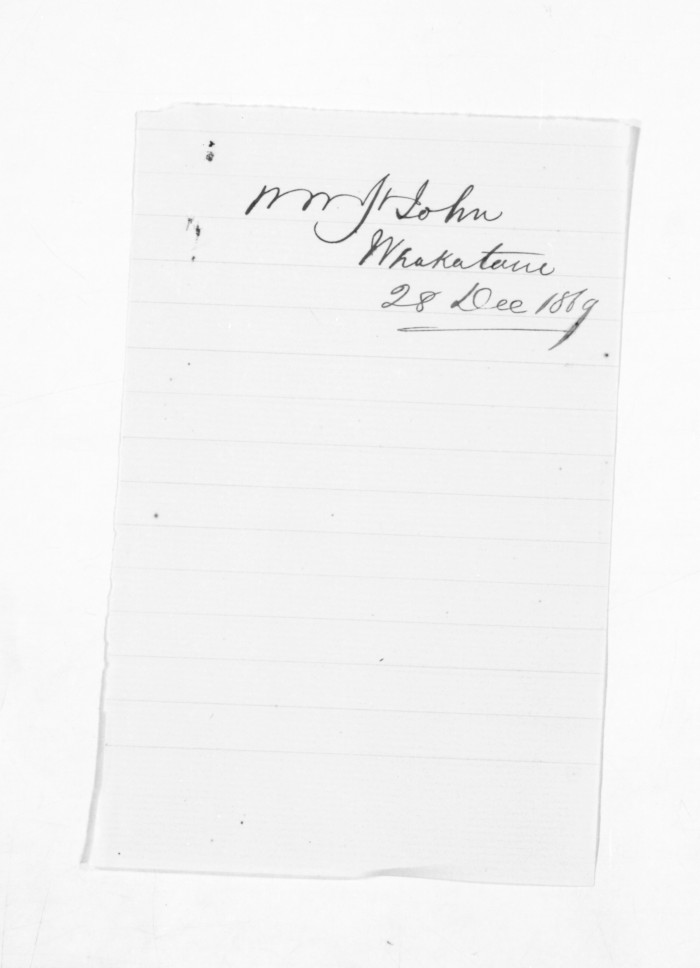 Wm St John
Whakatane
28 Dec 1869